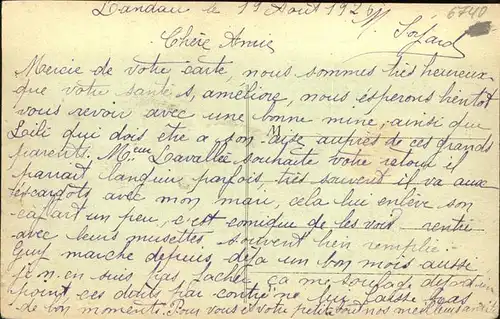 Landau le 19 Août 1926
M. 
6740
Chère Amie
Mercie de votre carte, nous sommes très heureux
que votre santé s, améliore, nous espérons bientôt
vous revoir avec une bonne mine, ainsi que
Loili qui dois être a son aise, auprès de ces grands
parents. M.ieur Lavallée souhaite votre retour il
parait languir parfois, très souvent il va aux
escargots avec mon mari, cela lui enlève son
caffart un peu, c'est comique de les voir rentré
avec leurs musettes, souvent bien remplie.
marche depuis déjà un bon mois aussi
je n, en suis pas faché, ça me soulage
point ces doits par contre ne lui laisse pas
de bon moments. Pour vous et votre petite